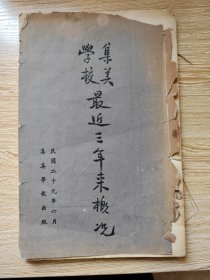 集美
學校
最近三年来概况
民國二十九年六月
集美學校出版